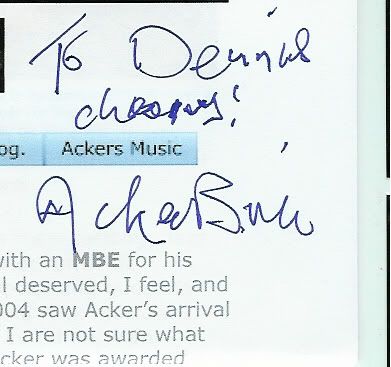 To Dennis
cheers!
og. Ackers Music
Acker Bilk
with an MBE for his
l deserved, I feel, and
004 saw Acker's arrival
I are not sure what
cker was awarded